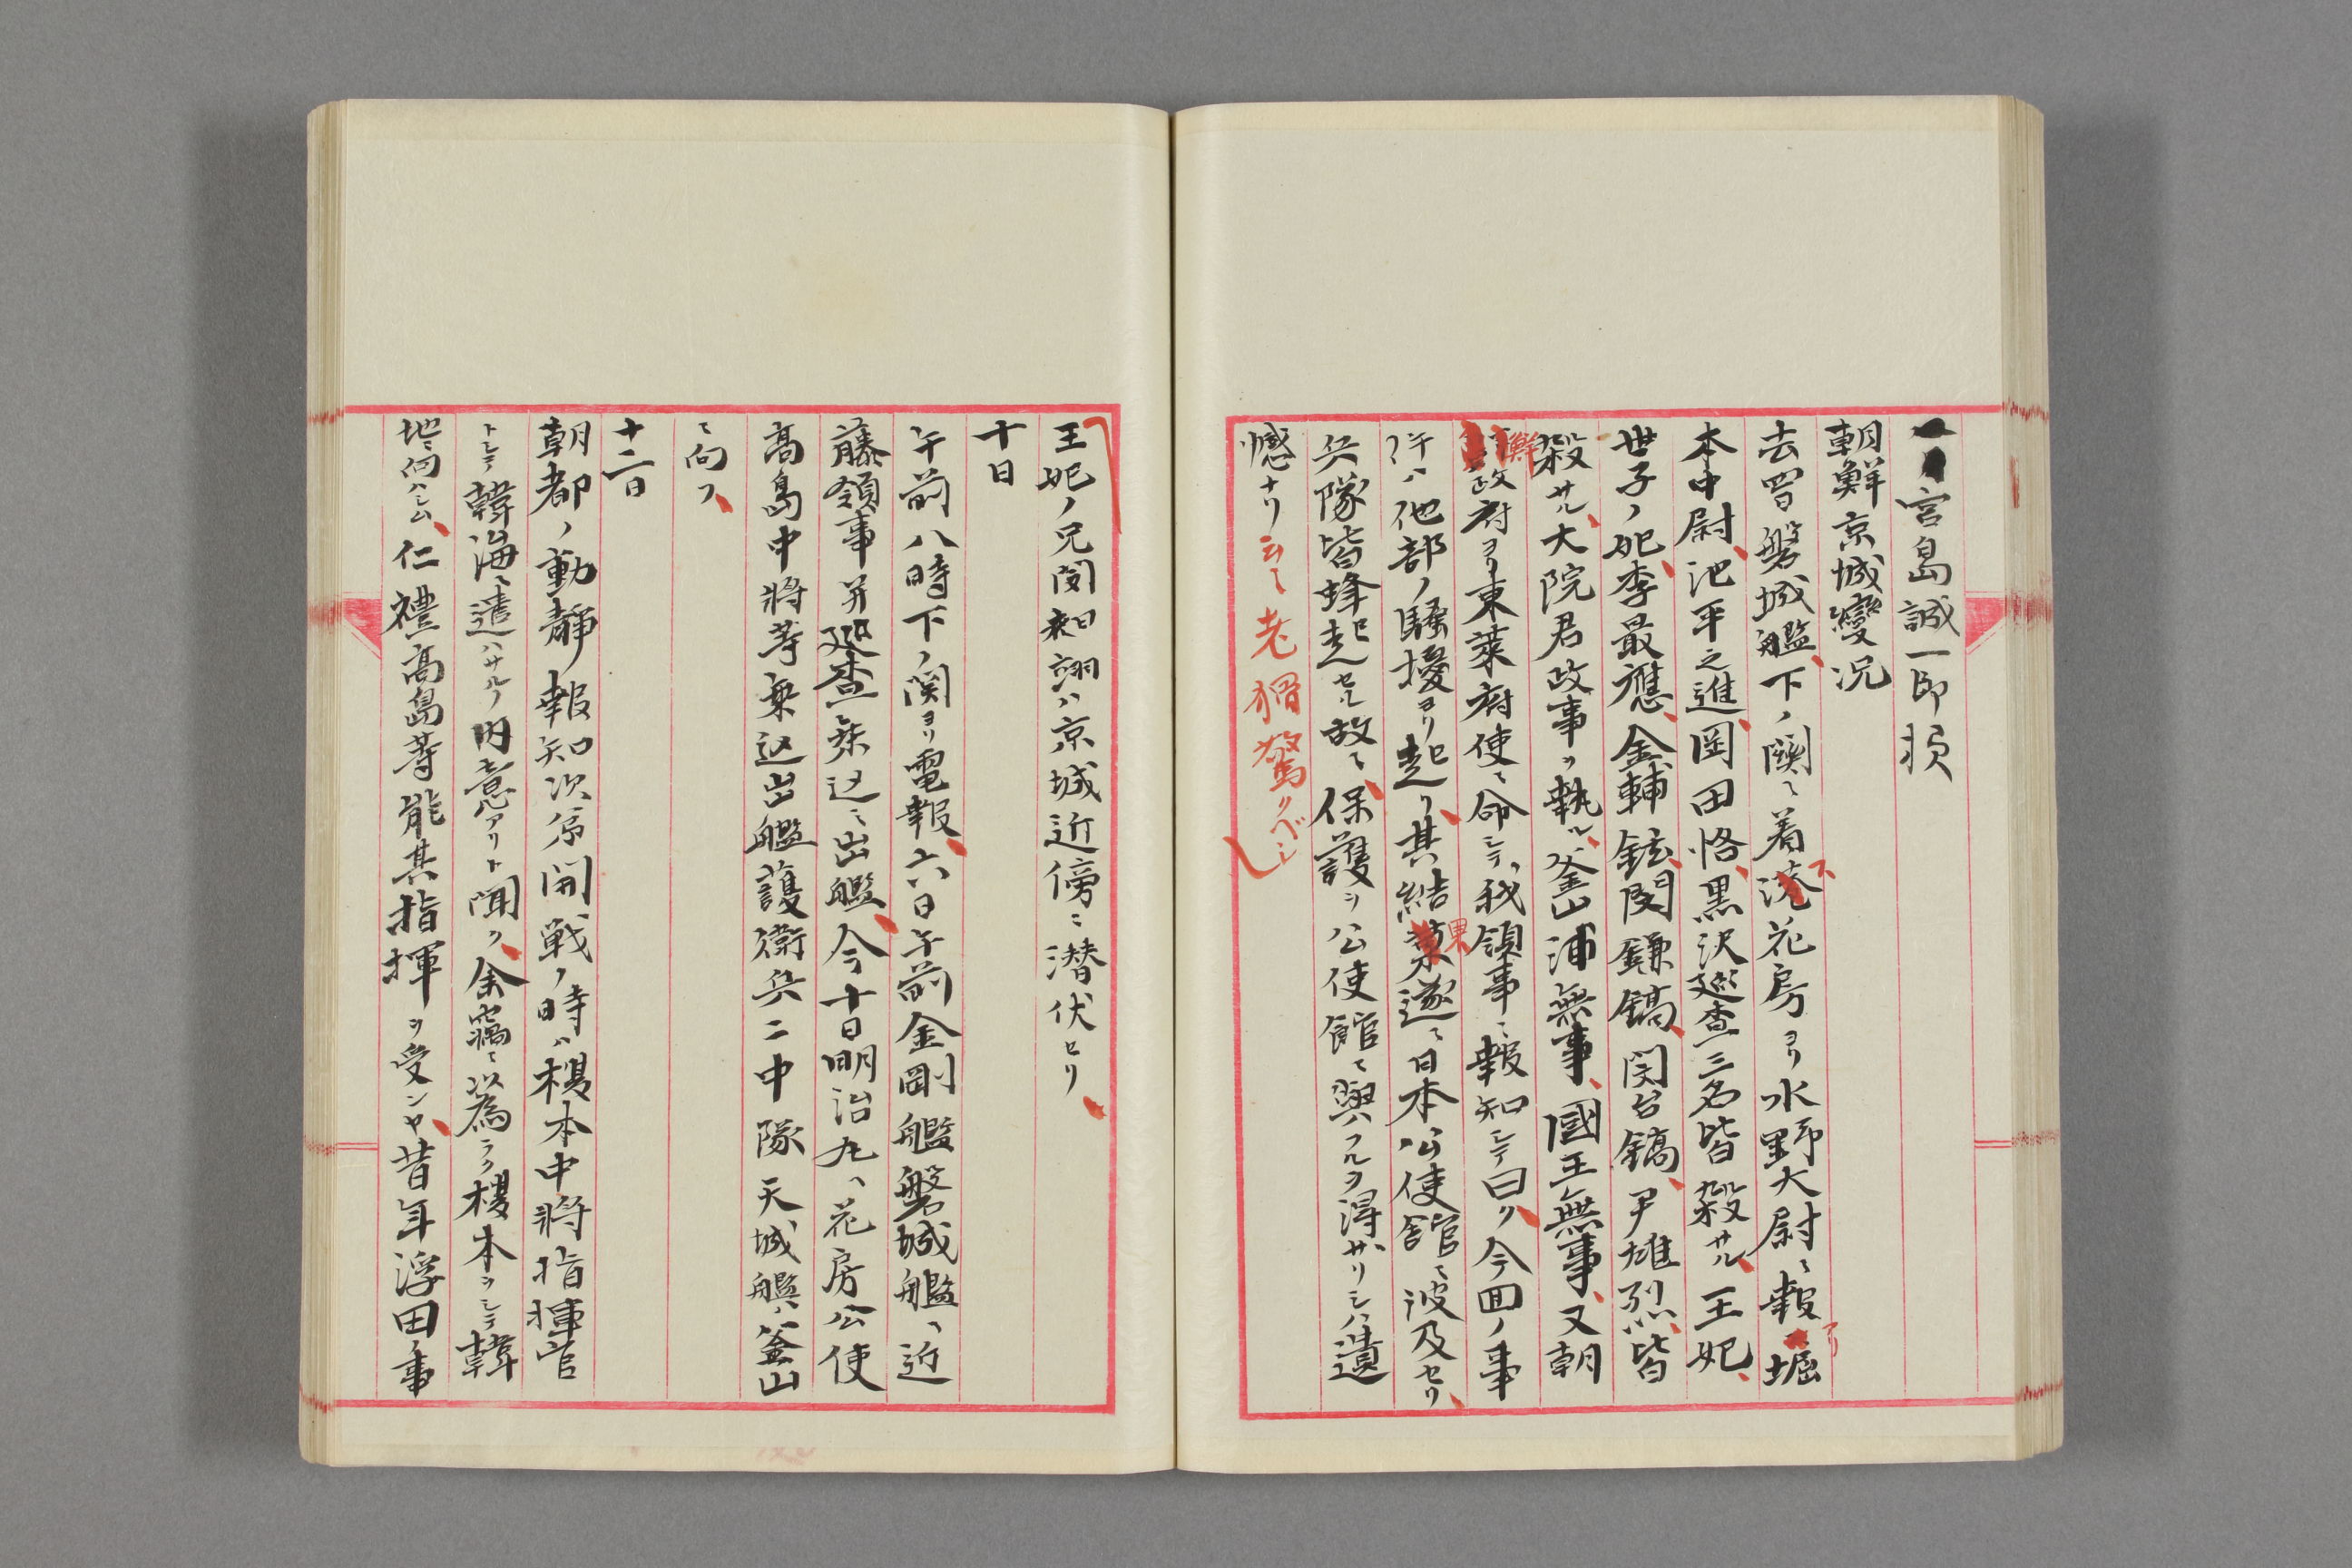 宮島誠一郎損
朝鮮京城變况
去四日磐城艦、下ノ関ニ着ス花房ヨリ水野大尉ニ報アリ堀
本中尉、池平之進、岡田恪、黒沢巡査三名皆殺サル、王妃、
世子ノ妃、李最應、金輔鉉、閔鎌鎬、閔台鎬、尹雄烈、皆
殺サル、大院君政事ヲ執ル、釜山浦無事、國王無事、又朝
鮮政府ヨリ東萊府使ニ命シテ、我領事ニ報知シテ曰ク、今回ノ事
件ハ他部ノ騒擾ヨリ起リ、其結果遂ニ日本公使館ニ波及セリ、
兵隊皆蜂起セル故ニ、保護ヲ公使館ニ與フルヲ得サリシハ遺
憾ナリ云々老猾驚クベシ
王妃ノ兄閔翊ハ京城近傍ニ潜伏セリ、
十日
午前八時下ノ関ヨリ電報、六日午前金剛艦磐城艦ヘ近
藤領事并巡査乗込ニ出艦、今十日明治丸ヘ花房公使
高島中将等乗込出艦護衛兵二中隊天城艦ハ釜山
ニ向フ、
十二日
朝都ノ動静報知次第開戦ノ時ハ榎本中将指揮官
トシテ韓海ニ遣ハサルノ内意アリト聞ク、余窃ニ以為ラク榎本ヲシテ韓
地ニ向ハシム、仁禮高島等能其指揮ヲ受ンヤ、昔年浮田ノ事